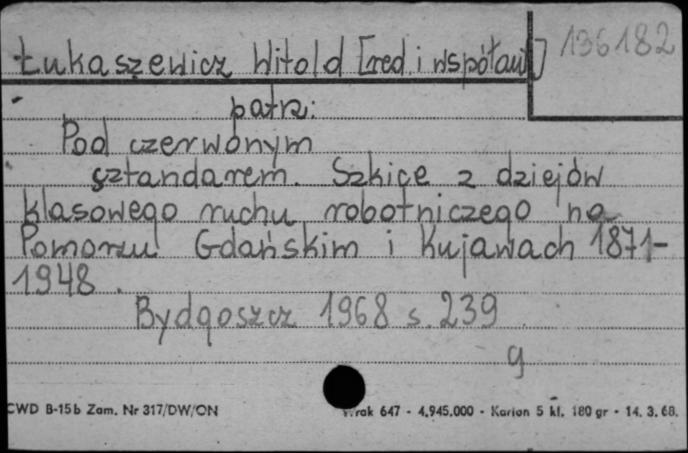 136182
Łukaszewicz Witold [red. i współaut]
patrz:
Pod czerwonym
sztandarem. Szkice z dziejów
klasowego ruchu robotniczego na
Pomorzu Gdańskim i Kujawach 1871-
1948.
Bydgoszcz 1968 s. 239
g
CWD B-15b Zam. Nr 317/DW/ON rak 647 - 4.945.000 - Karton 5 kl. 180 gr - 14. 3. 68.